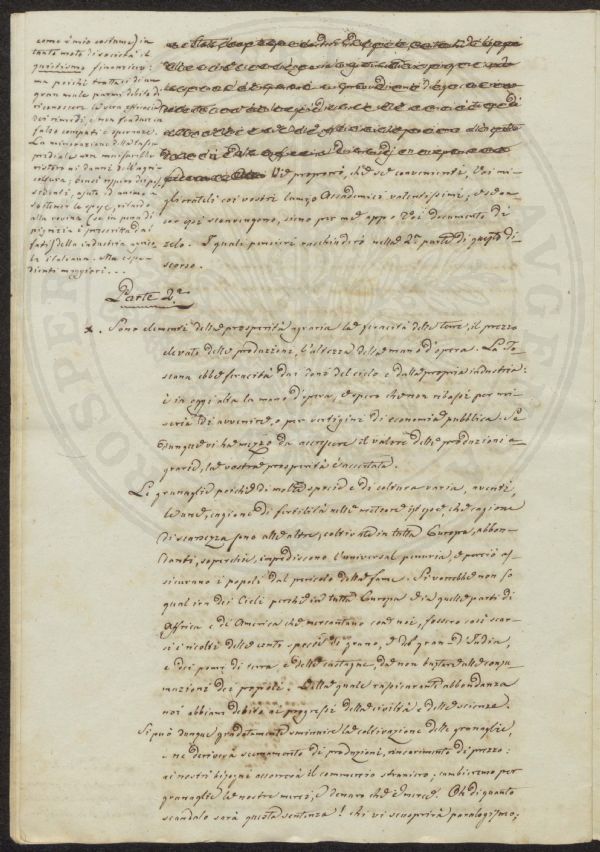 come è mio costume) in
tanto moto di società il
quietismo finanziero:
ma poichè trattasi di un
gran male parmi debito di
riconoscere la vera efficacia
dei rimedj, e non fondarci
falso compati e speranze.
La minorazione della tassa
prediale non sarebbe
ristoro ai danni dell'agri
coltura; bensì respiro dei pos
sidenti, ajuto ed animo a
sostenere le spese, ritardo
alla rovina (se in pena di
pigrizia è prescritta dai
fati) della industria agrico
la italiana. Ma espe
dienti maggiori...
Vie proporrò, che se convenienti, Voi mi-
gliorateli coi vostri lunghi Accademici valentissimi, e se an
cor essi sconvengono, sieno per me appo Voi documento di
zelo. I quali pensieri racchiuderò nella 2ª parte di questo di
scorso.
Parte 2ª
Sono elementi della prosperità agraria la feracità delle terre, il prezzo
elevato delle produzioni, l'altezza della mano d'opera. La To
scana ebbe feracità dai doni del cielo e dalla propria industria:
è in oggi alta la mano d'opera, e spero che non ribassi per mi
seria di avvenire, o per vertigine di economia pubblica. Se
dunque vi ha mezzo da accrescere il valore delle produzioni a
grarie, la vostra prosperità è accertata.
Le granaglie perchè di molte specie e di coltura varia, aventi,
le une, cagione di fertilità nelle meteore istesse che cagione
di scarsezza sono alle altre, coltivate in tutta Europa, abbon
danti, soperchie, impediscono l'universal penuria, e perciò as
sicurano i popoli dal pericolo della fame. Si vorrebbe non so
qual ira dei Cieli perchè in tutta Europa e in quelle parti di
Affrica e di America che mercantano con noi, fossero così scar
si i ricolti delle cento specie di grano, e del gran d'India,
e dei pomi di terra e delle castagne, da non bastare alle consu
mazioni dei popoli. Della quale rassicurante abbondanza
noi abbiam debito ai progressi della civiltà e delle scienze.
Si può dunque gradatamente sminuire la coltivazione delle granaglie,
e ne deriverà scemamento di produzioni, rincarimento di prezzo:
ai nostri bisogni accorrerà il commercio straniero; cambieremo per
granaglie le nostre merci, e denaro che è merce. Oh di quanto
scandalo sarà questa sentenza! chi vi scuoprirà paralogismo;